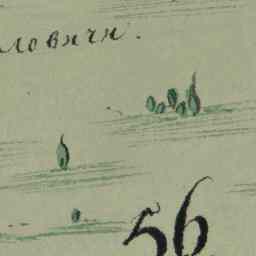 ловичи.
56